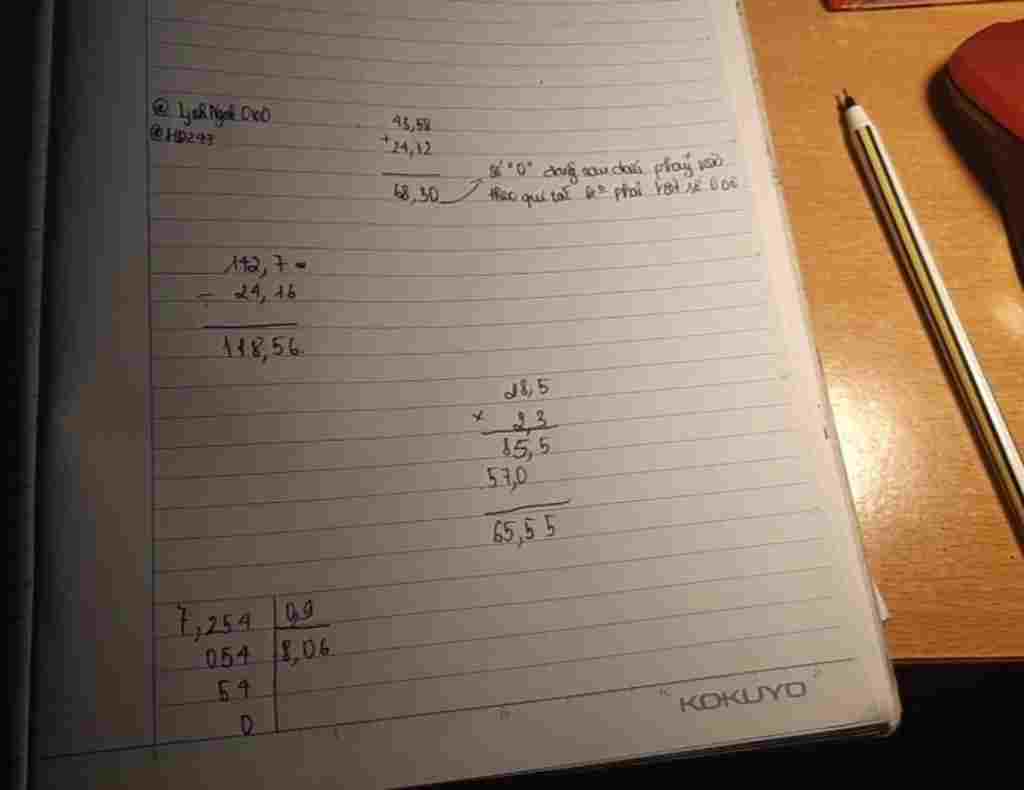 @ LinhNgọc OwO
@HD243
43,58
+
24,12
68,30
số "0" đứng sau dấu phẩy
theo qui tắc phải
142,7
- 24,16
118,56
28,5
× 2,3
85,5
57,0
65,55
7,254 0,9
054 8,06
54
0
KOKUYO